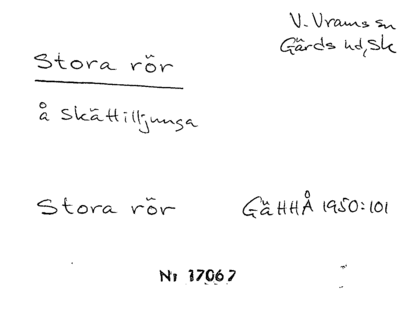 V. Vrams sn
Gärds hd, Sk
Stora rör
å Skättilljunga
Stora rör GäHHÅ 1950:101
Nr 17067